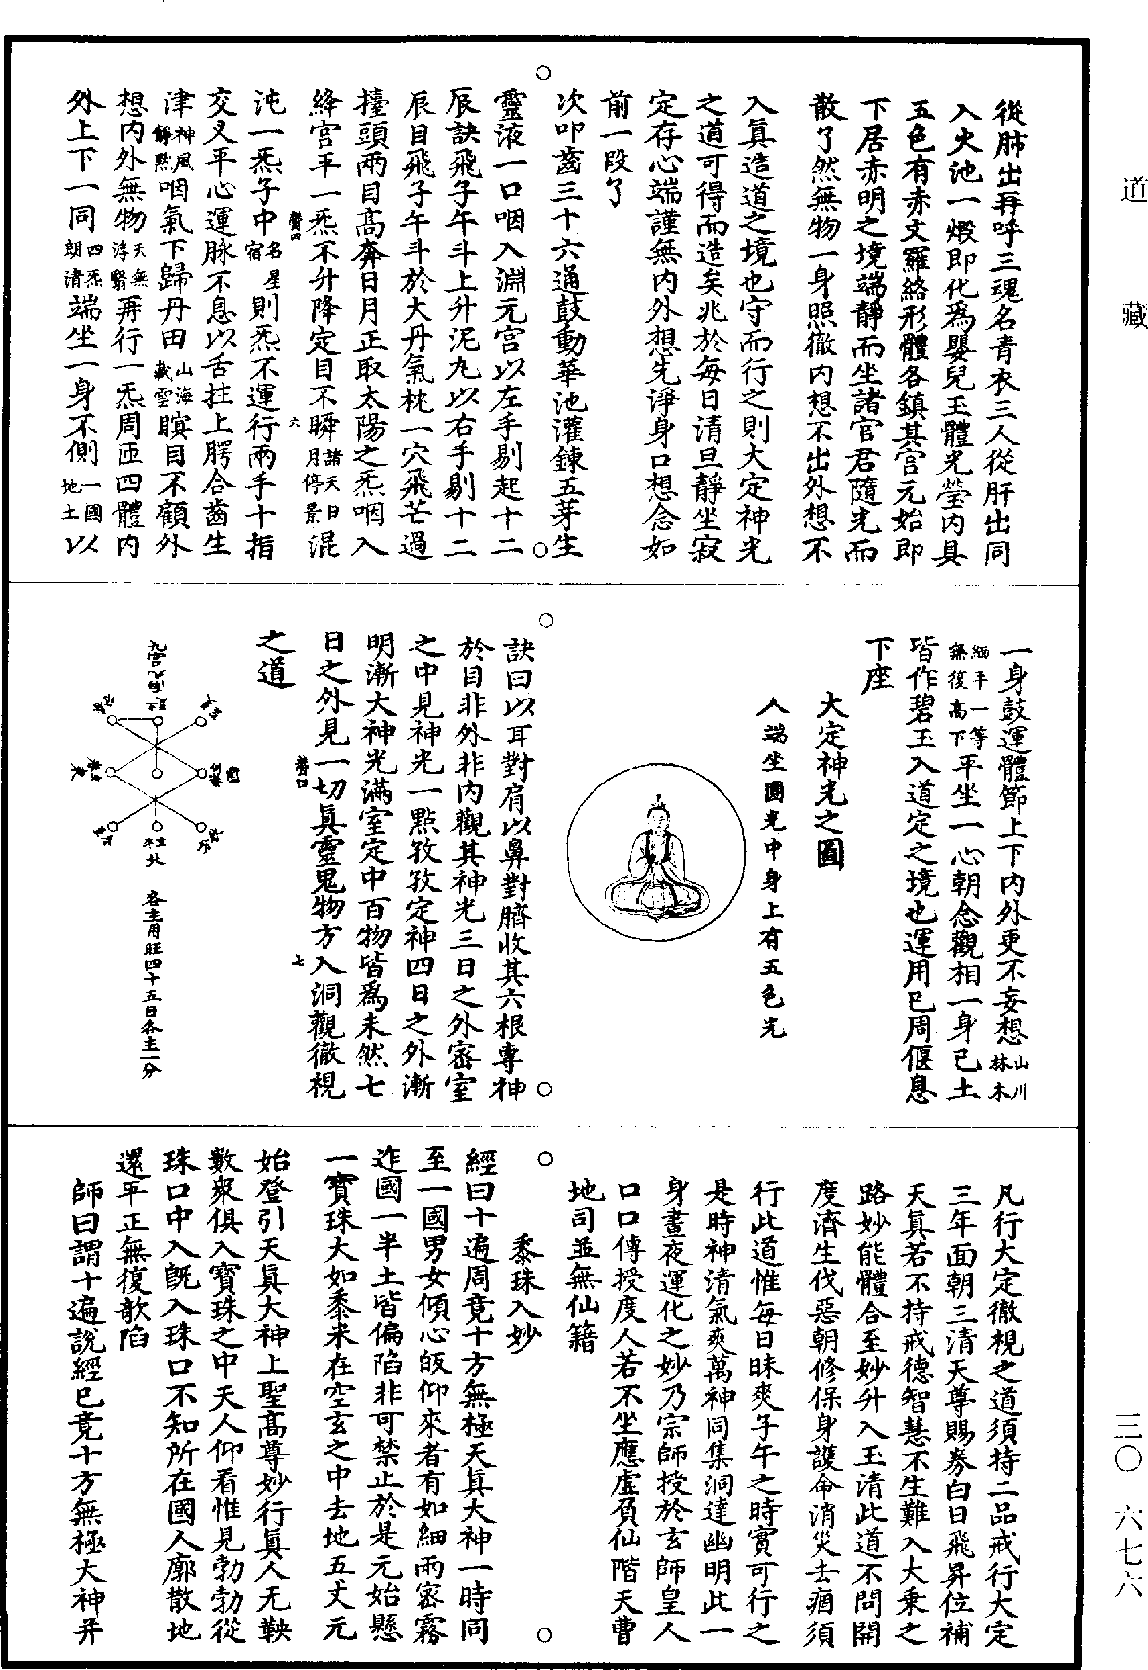 道藏
三〇
六七六
從肺出再呼三魂名青衣三人從肝出同
入火池一煅即化為嬰兒玉體光瑩內具
五色有赤文羅絡形體各鎮其宮元始即
下居赤明之境端靜而坐諸官君隨光而
散了然無物一身照徹內想不出外想不
入真造道之境也守而行之則大定神光
之道可得而造矣兆於每日清旦靜坐寂
定存心端謹無內外想先淨身口想念如
前一段了
次叩齒三十六通鼓動華池灌鍊五芽生
靈液一口咽入淵元宮以左手剔起十二
辰訣飛子午斗上升泥丸以右手剔十二
辰目飛子午斗於大丹氣枕一穴飛芒過
擡頭兩目高奔日月正取太陽之炁咽入
絳宮平一炁不升降定目不瞬諸天日月停景混
沌一炁子中名星宿則炁不運行兩手十指
交叉平心運脉不息以舌拄上腭合齒生
津神風解默咽氣下歸丹田山海藏雲瞑目不顧外
想內外無物天無浮翳再行一炁周匝四體內
外上下一同四炁朝清端坐一身不側一國地土以
一身鼓運體節上下內外更不妄想山川林木
緬平一等無復高下平坐一心朝念觀相一身已土
皆作碧玉入道定之境也運用已周偃息
下座
大定神光之圖
人端坐圓光中身上有五色光
訣曰以耳對肩以鼻對臍收其六根專神
於目非外非內觀其神光三日之外密室
之中見神光一點孜孜定神四日之外漸
明漸大神光滿室定中百物皆為未然七
日之外見一切真靈鬼物方入洞觀徹視
之道
各主用旺四十五日各主一分
凡行大定徹視之道須持二品戒行大定
三年面朝三清天尊賜券白日飛昇位補
天真若不持戒德智慧不生難入大乘之
路妙能體合至妙升入玉清此道不問開
度濟生伐惡朝修保身護命消災去痼須
行此道惟每日昧爽子午之時實可行之
是時神清氣爽萬神同集洞達幽明此一
身晝夜運化之妙乃宗師授於玄師皇人
口口傳授度人若不坐應虛負仙階天曹
地司並無仙籍
黍珠入妙
經曰十遍周竟十方無極天真大神一時同
至一國男女傾心皈仰來者有如細雨密霧
迮國一半土皆偏陷非可禁止於是元始懸
一寶珠大如黍米在空玄之中去地五丈元
始登引天真大神上聖高尊妙行真人无鞅
數衆俱入寶珠之中天人仰看惟見勃勃從
珠口中入旣入珠口不知所在國人廓散地
還平正無復欹陷
師曰謂十遍說經已竟十方無極大神并